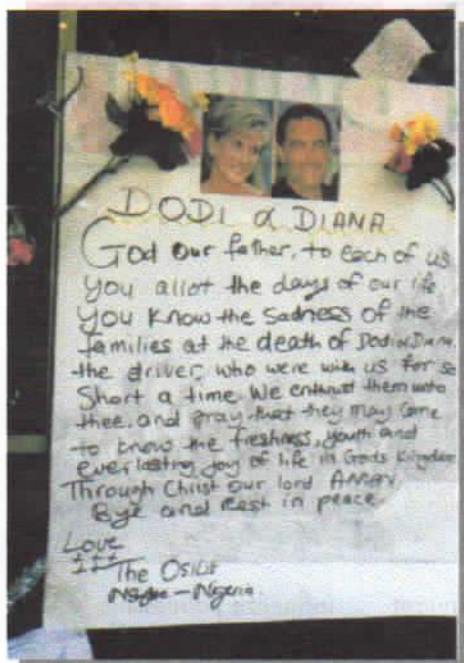 DODI & DIANA
God our father, to each of us
you allot the days of our life
you know the sadness of the
families at the death of Dodi & Diana,
the driver, who were with us for so
short a time. We entrust them unto
thee, and pray that they may come
to know the freshness, youth and
everlasting joy of life in Gods Kingdom
Through Christ our lord AMEN.
Bye and Rest in peace.
Love
The
Nigeria